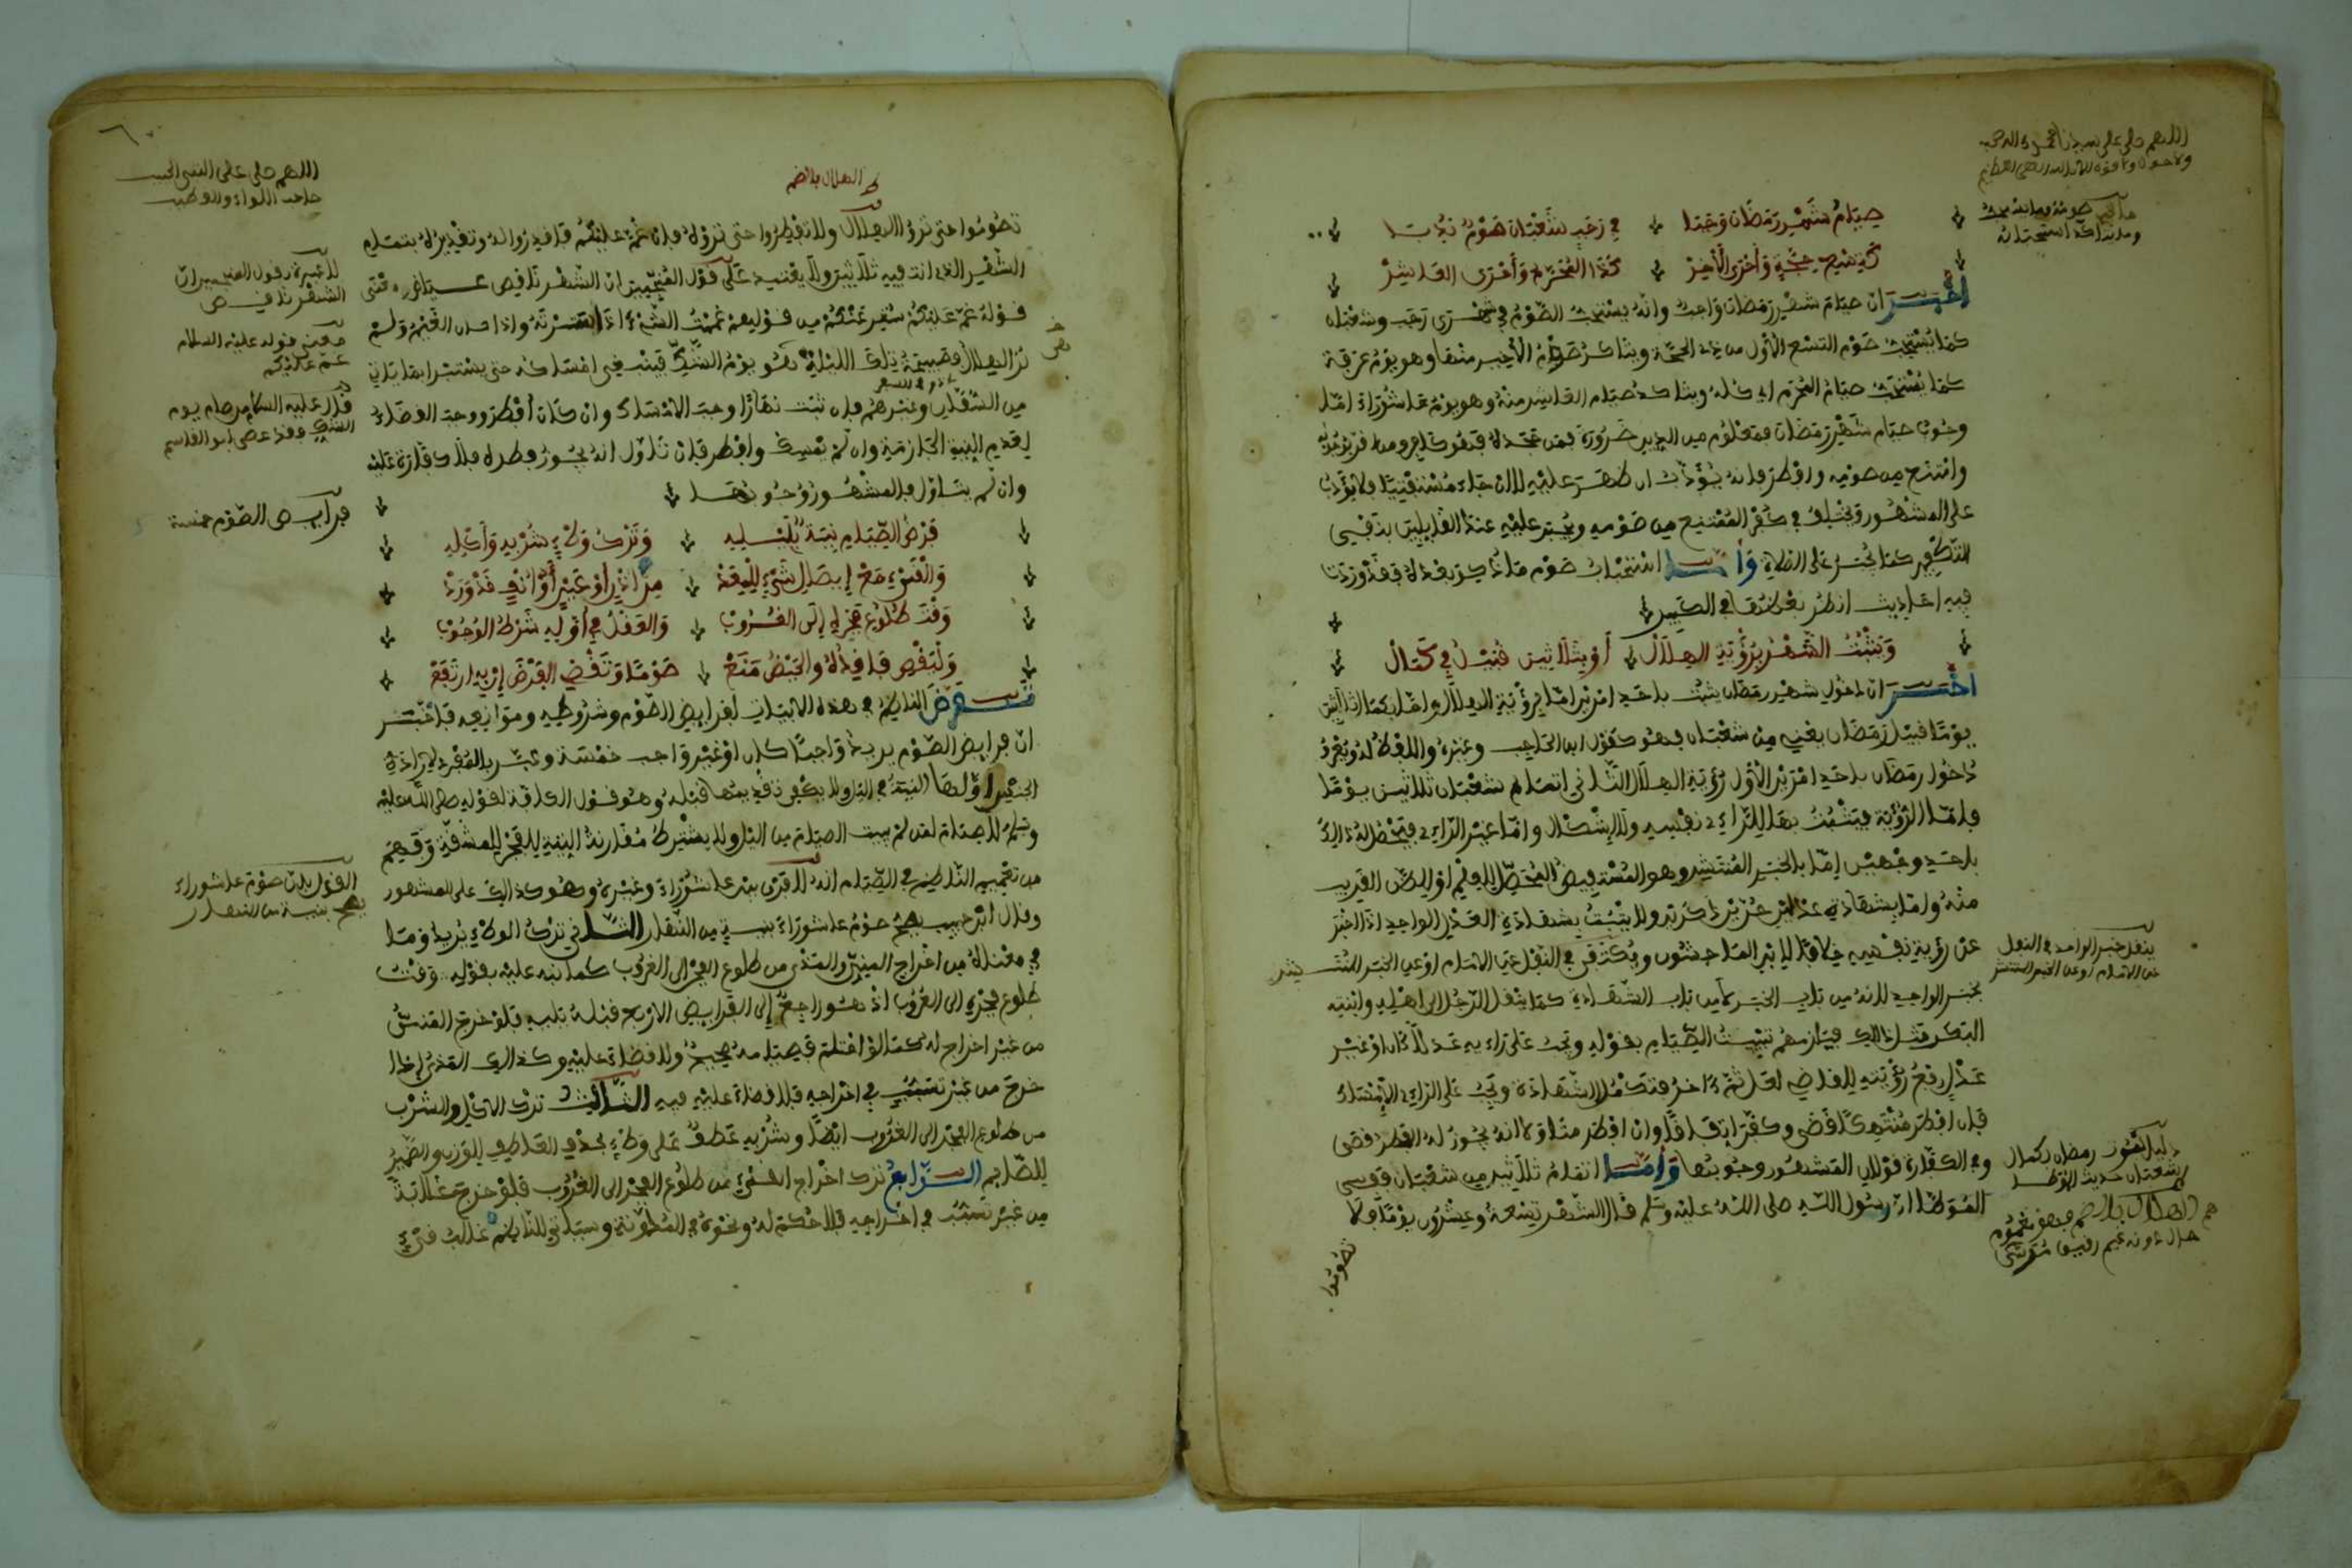 صِيَامُ شَهْرِ رَمَضَانَ وَجَبَا في رَجَبٍ شَعْبَانَ صَوْمٌ نُدِبَا
كَتِسْعِ حِجَّةٍ وَأَحْرَى الْآخِرْ كَذَا الْمُحَرَّمُ وَأَحْرَى الْعَاشِرْ
أخبر ان صيام شهر رمضان واجب وانه يستحب الصوم في شهري رجب وشعبان
كما يستحب صوم التسع الاول من ذي الحجة ويتاكد صوم الاخير منها وهو يوم عرفة
كما يستحب صيام المحرم اي كله ويتاكد صيام العاشر منه وهو يوم عاشوراء اما
وجوب صيام شهر رمضان فمعلوم من الدين ضرورة فمن جحده فهو كافر ومن اقر بوجوبه
وامتنع من صومه وافطر فانه يؤدب ان ظهر عليه الا ان جاء مستفتيا فلا يؤدب
على المشهور ويختلف في كفر الممتنع من صومه
التكفير كما يجبر على الصلاة وأما استحباب صوم ما ذكر بعده فقد وردت
فيه احاديث انظر بعضها في الكبير
وَيَثْبُتُ الشَّهْرُ بِرُؤْيَةِ الْهِلَالْ أَوْ بِثَلَاثِينَ قُبَيْلُ فِي كَمَالْ
أخبر ان دخول شهر رمضان يثبت باحد امرين اما برؤية الهلال واما بكمال ثلاثين
يوما قبل رمضان يعني من شعبان فهو كقول ابن الحاجب وغيره واللفظ له ويعرف
دخول رمضان باحد امرين الاول رؤية الهلال الثاني اتمام شعبان ثلاثين يوما
فاما الرؤية فيثبت بها للراءي نفسه ولا اشكال واما غير الراءي فيحصل له ذلك
باحد وجهين إما بالخبر المنتشر وهو المستفيض المحصل للعلم او للظن القريب
منه واما بشهادة عدلين حرين ذكرين ولا يثبت بشهادة العدل الواحد اذا اخبر
عن رؤية نفسه خلافا لابن الماجشون ويكتفى في النقل عن الامام او عن الخبر المنتشر
بخبر الواحد لانه من باب الخبر لا من باب الشهادة كما ينقل الرجل الى اهله وابنته
البكر مثل ذالك فيلزمهم تبييت الصيام بقوله ويجب على راءيه عدلا كان او غير
عدل رفع رؤيته للقاضي لعل ثم ءاخر فتكمل الشهادة ويجب على الراءي الامساك
فان افطر منتهكا قضى وكفر اتفاقا وان افطر متاولا انه يجوز له الفطر قضى
وفي الكفارة قولان المشهور وجوبها وأما اتمام ثلاثين من شعبان ففي
الموطا ان رسول الله صلى الله عليه وسلم قال الشهر تسعة وعشرون يوما فلا
تصوموا
ينقل خبر الواحد في النقل
عن الامام او عن الخبر المنتشر
تصوموا حتى تروا الهلال ولا تفطروا حتى تروه فان غم عليكم فاقدروا له وتقديره بتمام
الشهر الذي انت فيه ثلاثين ولا يعتمد على قول المنجمين ان الشهر ناقص
قوله غم عليكم ستر عنكم من قوليهم غممت الشيء اذا سترته
تر الهلال فصبيحة تلك الليلة هو يوم الشك فينبغي امساكه حتى يستبرا بما ياتي
من السفار وغيرهم فان ثبت نهارا وجب الامساك وان كان افطر ووجب القضاء
لعدم النية الجازمة وان لم يمسك وافطر فان تاول انه يجوز فطره فلا كفارة عليه
وان لم يتاول فالمشهور وجوبها
فَرْضُ الصِّيَامِ نِيَّةٌ بِلَيْلِهِ وَتَرْكُ وَطْءٍ شُرْبِهِ وَأَكْلِهِ
وَالْقَيْءِ مَعْ إِيصَالِ شَيْءٍ لِلْمِعَدْ مِنْ أُذْنٍ أَوْ عَيْنٍ أَوْ أَنْفٍ قَدْ وَرَدْ
وَقْتَ طُلُوعِ فَجْرِهِ إِلَى الْغُرُوبْ وَالْعَقْلُ في أَوَّلِهِ شَرْطُ الْوُجُوبْ
وَلْيَقْضِ فَاقِدُهُ وَالْحَيْضُ مَنَعْ صَوْمًا وَتَقْضِي الْفَرْضَ إِنْ بِهِ ارْتَفَعْ
تعرض الناظم في هذه الابيات لفرايض الصوم وشروطه وموانعه فأخبر
ان فرايض الصوم يريد واجبا كان او غير واجب خمسة وعبر بالمفرد لارادة
الجنس اولها النية في الليل ولا يكفي تقديمها قبله وهو قول الكافة لقوله صلى الله عليه
وسلم لا صيام لمن لم يبيت الصيام من الليل ولا يشترط مقارنة النية للفجر للمشقة وفهم
من تعميم الناظم في الصيام انه لا فرق بين عاشوراء وغيره وهو كذالك على المشهور
وقال ابن حبيب يصح صوم عاشوراء بنية من النهار الثاني ترك الوطء يريد وما
في معناه من اخراج المني والمذي من طلوع الفجر الى الغروب كما نبه عليه بقوله وقت
طلوع فجره الى الغروب اذ هو راجع إلى الفرايض الاربع قبله فلو خرج المني
من غير اخراج له كما لو احتلم فصيامه صحيح ولا قضاء عليه وكذالك المذي إذا
خرج من غير تسبب في اخراجه فلا قضاء عليه فيه الثالث ترك الاكل والشرب
من طلوع الفجر الى الغروب ايضا وشربه عطف على وطء بحذف العاطف للوزن والضمير
للصايم الرابع ترك اخراج القيء من طلوع الفجر الى الغروب فلو خرج غلبة
من غير تسبب في اخراجه فلا حكم له ونحوه في المدونة وسياتي للناظم غالب قيء
لا عبرة بقول المنجمين ان
الشهر ناقص
معنى قوله عليه السلام
غم عليكم
قال عليه السلام من صام يوم
الشك فقد عصى ابو القاسم
فرايض الصوم خمسة
القول بان صوم عاشوراء
يصح بنية من النهار